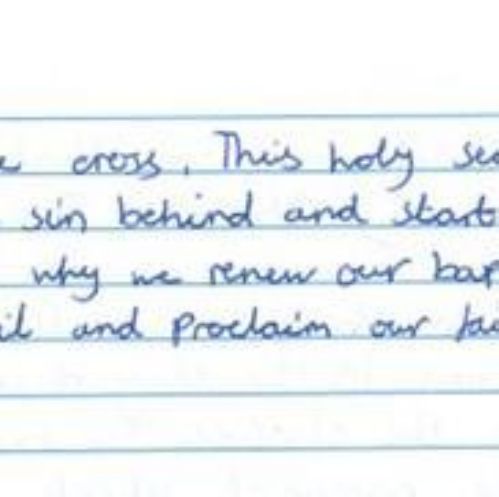 e cross. This holy sea
sin behind and start
why we renew our bap
il and Proclaim our fai